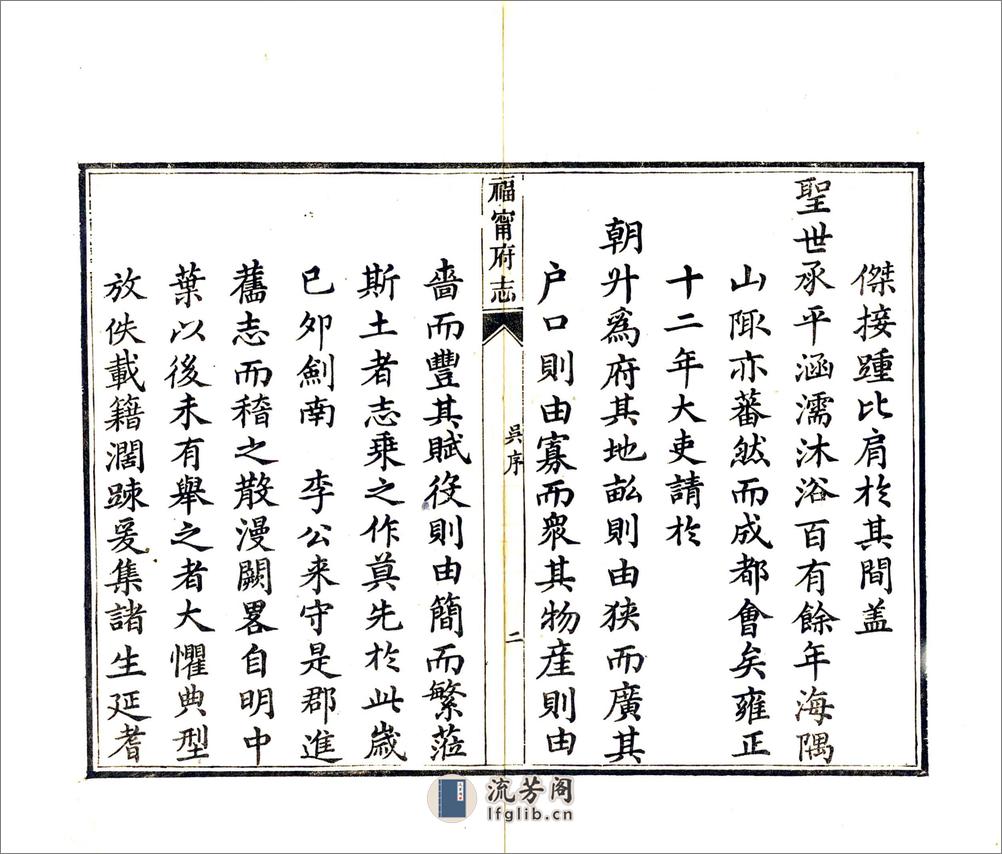 傑接踵比肩於其間盖
聖世承平涵濡沐浴百有餘年海隅
山陬亦蕃然而成都會矣雍正
十二年大吏請於
朝升爲府其地畝則由狭而廣其
户口則由寡而衆其物産則由
福甯府志
吳序
二
嗇而豐其賦役則由簡而繁蒞
斯土者志乗之作莫先於此歲
已夘劍南 李公来守是郡進
舊志而稽之散漫闕畧自明中
葉以後未有舉之者大懼典型
放佚載籍濶踈爰集諸生延耆
流芳阁
lfglib.cn